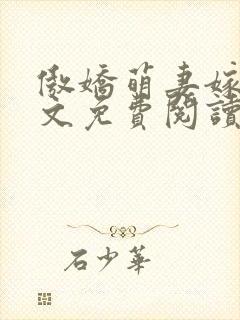 傲嬌萌妻嫁
文免費閱讀
石少華